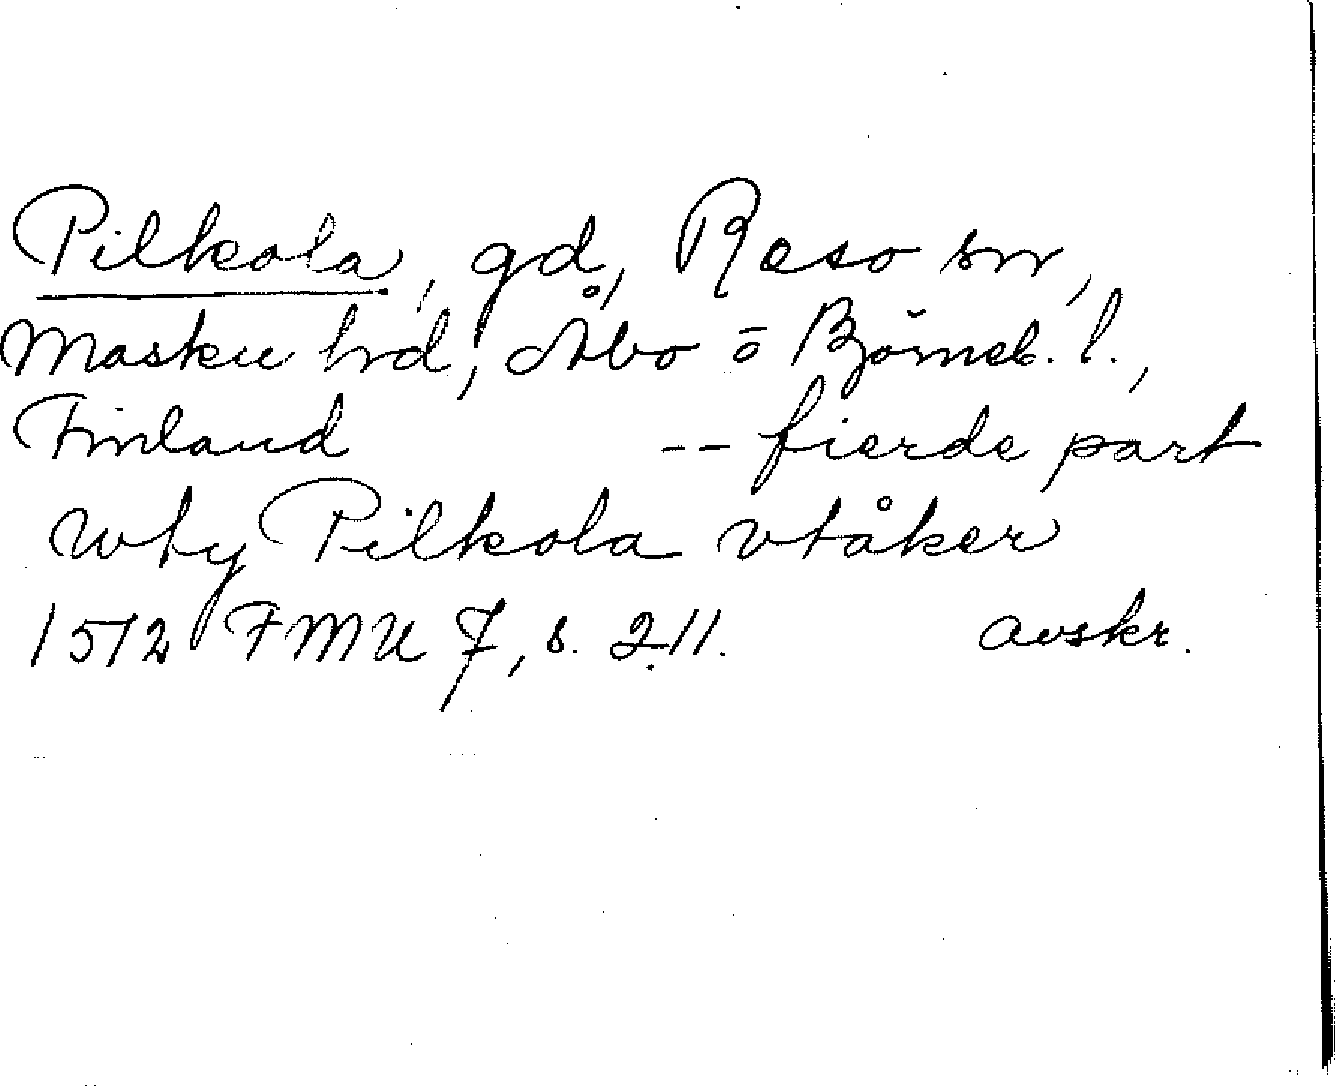 Pilkola, gd, Reso sn,
Masku hrd, Åbo o Björneb. l.,
Finland -- fierde part
wty Pilkola vtåker
1512 FMU 7, s. 211. avskr.